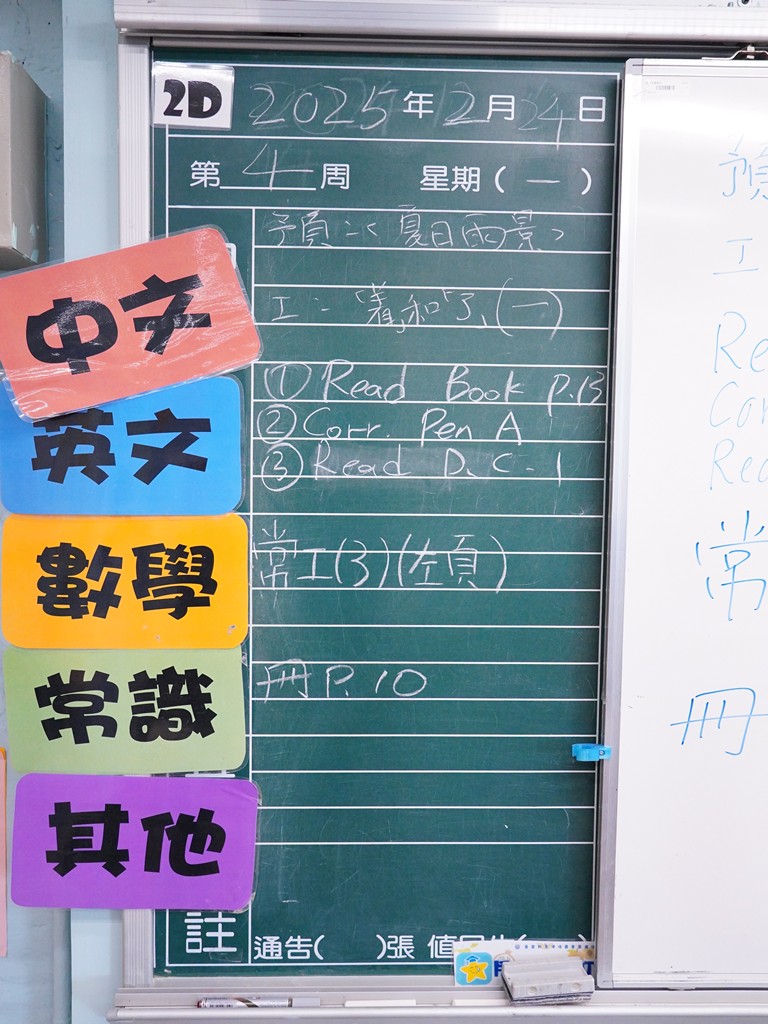 2D 2025年2月24日
第4周 星期(一)
預:<夏日雨景>
中文
工:「着」和「了」(一)
① Read Book P.13
英文
② Corr. Pen A
③ Read D.C-1
數學
常工(3)(左頁)
常識
冊P.10
其他
註 通告( )張
預
工
Re
Re
常
冊